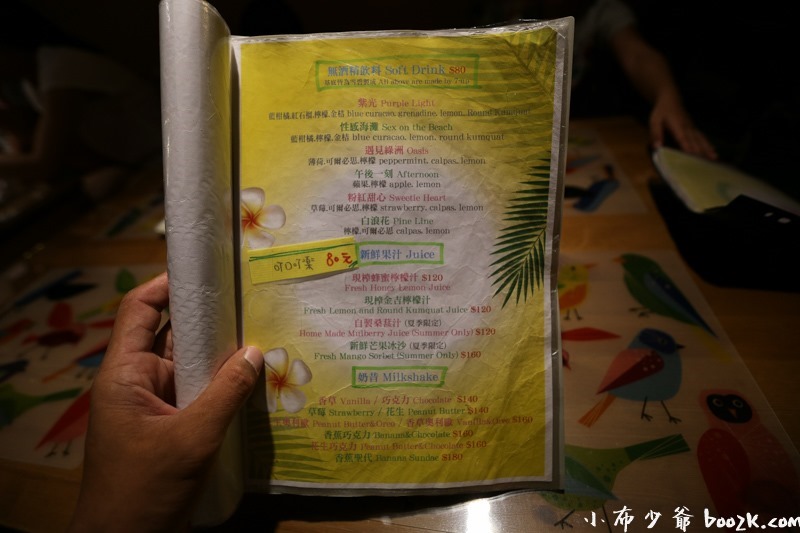 無酒精飲料 Soft Drink $80
All above are made by 7-up
紫光 Purple Light
藍柑橘,紅石榴,檸檬,金桔 blue curacao, grenadine, lemon, Round Kumquat
性感海灘 Sex on the Beach
藍柑橘,檸檬,金桔 blue curacao, lemon, round kumquat
遇見綠洲 Oasis
薄荷,可爾必思,檸檬 peppermint, calpas, lemon
午後一刻 Afternoon
蘋果,檸檬 apple, lemon
粉紅甜心 Sweetie Heart
草莓,可爾必思,檸檬 strawberry, calpas, lemon
白浪花 Pine Line
檸檬,可爾必思 calpas, lemon
80元
新鮮果汁 Juice
現榨蜂蜜檸檬汁 $120
Fresh Honey Lemon Juice
現榨金吉檸檬汁
Fresh Lemon and Round Kumquat Juice $120
自製桑葚汁 (夏季限定)
Home Made Mulberry Juice (Summer Only) $120
新鮮芒果冰沙 (夏季限定)
Fresh Mango Sorbet (Summer Only) $160
奶昔 Milkshake
香草 Vanilla / 巧克力 Chocolate $140
草莓 Strawberry / 花生 Peanut Butter $140
Peanut Butter&Oreo / 香草奧利歐 $160
香蕉巧克力 Banana&Chocolate $160
花生巧克力 Peanut Butter&Chocolate $160
香蕉聖代 Banana Sundae $180
小布少爺 boo2k.com